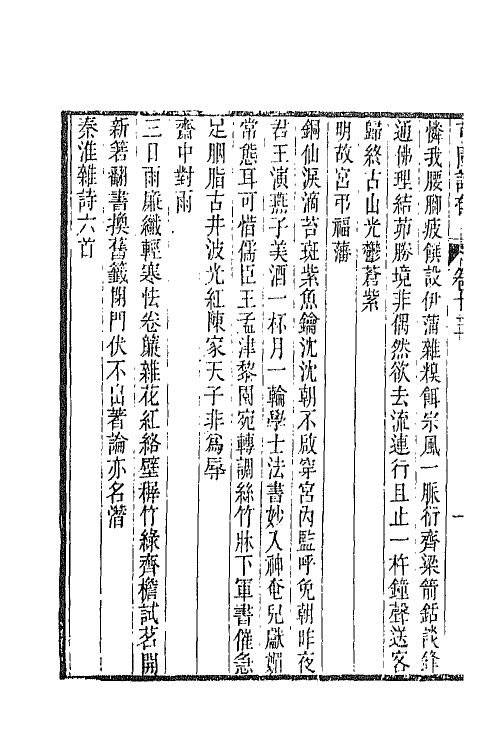 憐我腰脚疲饌設伊蒲雜糗餌宗風一脈衍齊梁箭鋒談鋒
通佛理結茆勝境非偶然欲去流連行且止一杵鐘聲送客
歸終古山光鬱蒼紫
明故宮弔福藩
銅仙淚滴苔斑紫魚鑰沈沈朝不啟穿宮內監呼免朝昨夜
君王演燕子美酒一杯月一輪學士法書妙入神奄兒獻媚
常態耳可惜儒臣王孟津黎園宛轉調絲竹牀下軍書催急
足胭脂古井波光紅陳家天子非爲辱
齋中對雨
三日雨廉纖輕寒怯卷簾雜花紅絡壁稺竹綠齊檐試茗開
新箬翻書換舊籤閉門伏不出著論亦名潛
秦淮雜詩六首